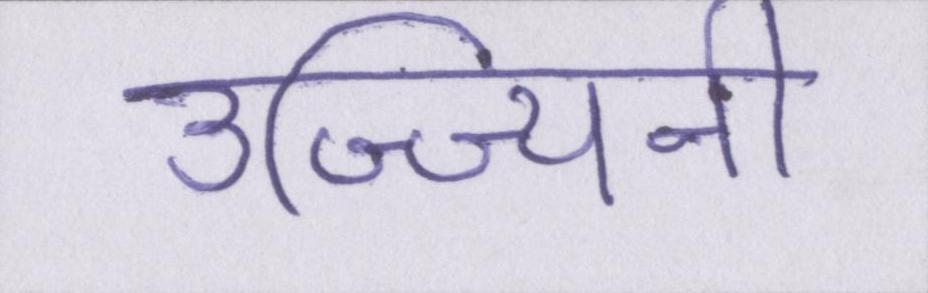 उज्ज्यिनी